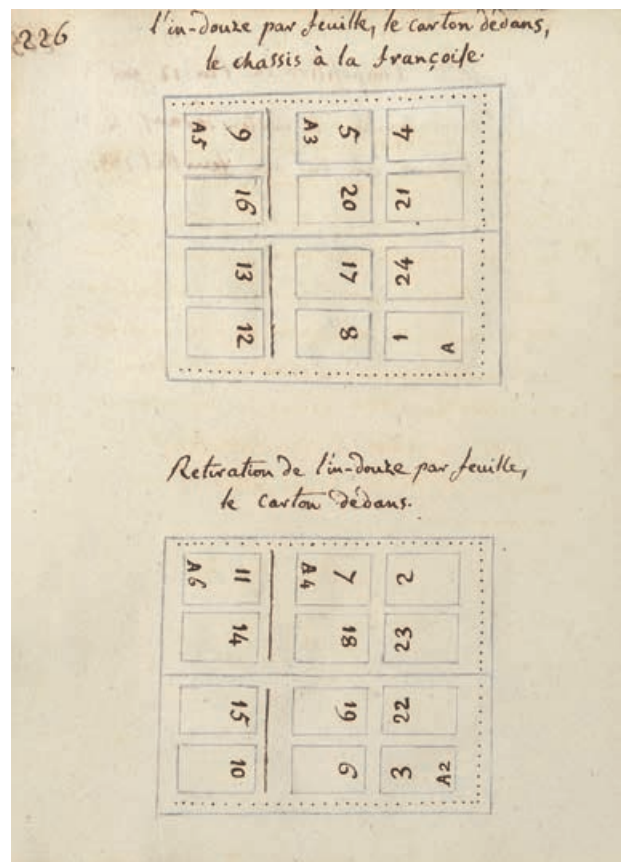 226
l'in-douze par feuille, le carton dédans,
le chassis à la françoise.
9 A5 5 A3 4
16 20 21
13 17 24
12 8 1 A
Retiration de l'in-douze par feuille,
le carton dédans.
11 A6 7 A4 2
14 18 23
15 19 22
10 6 3 A2